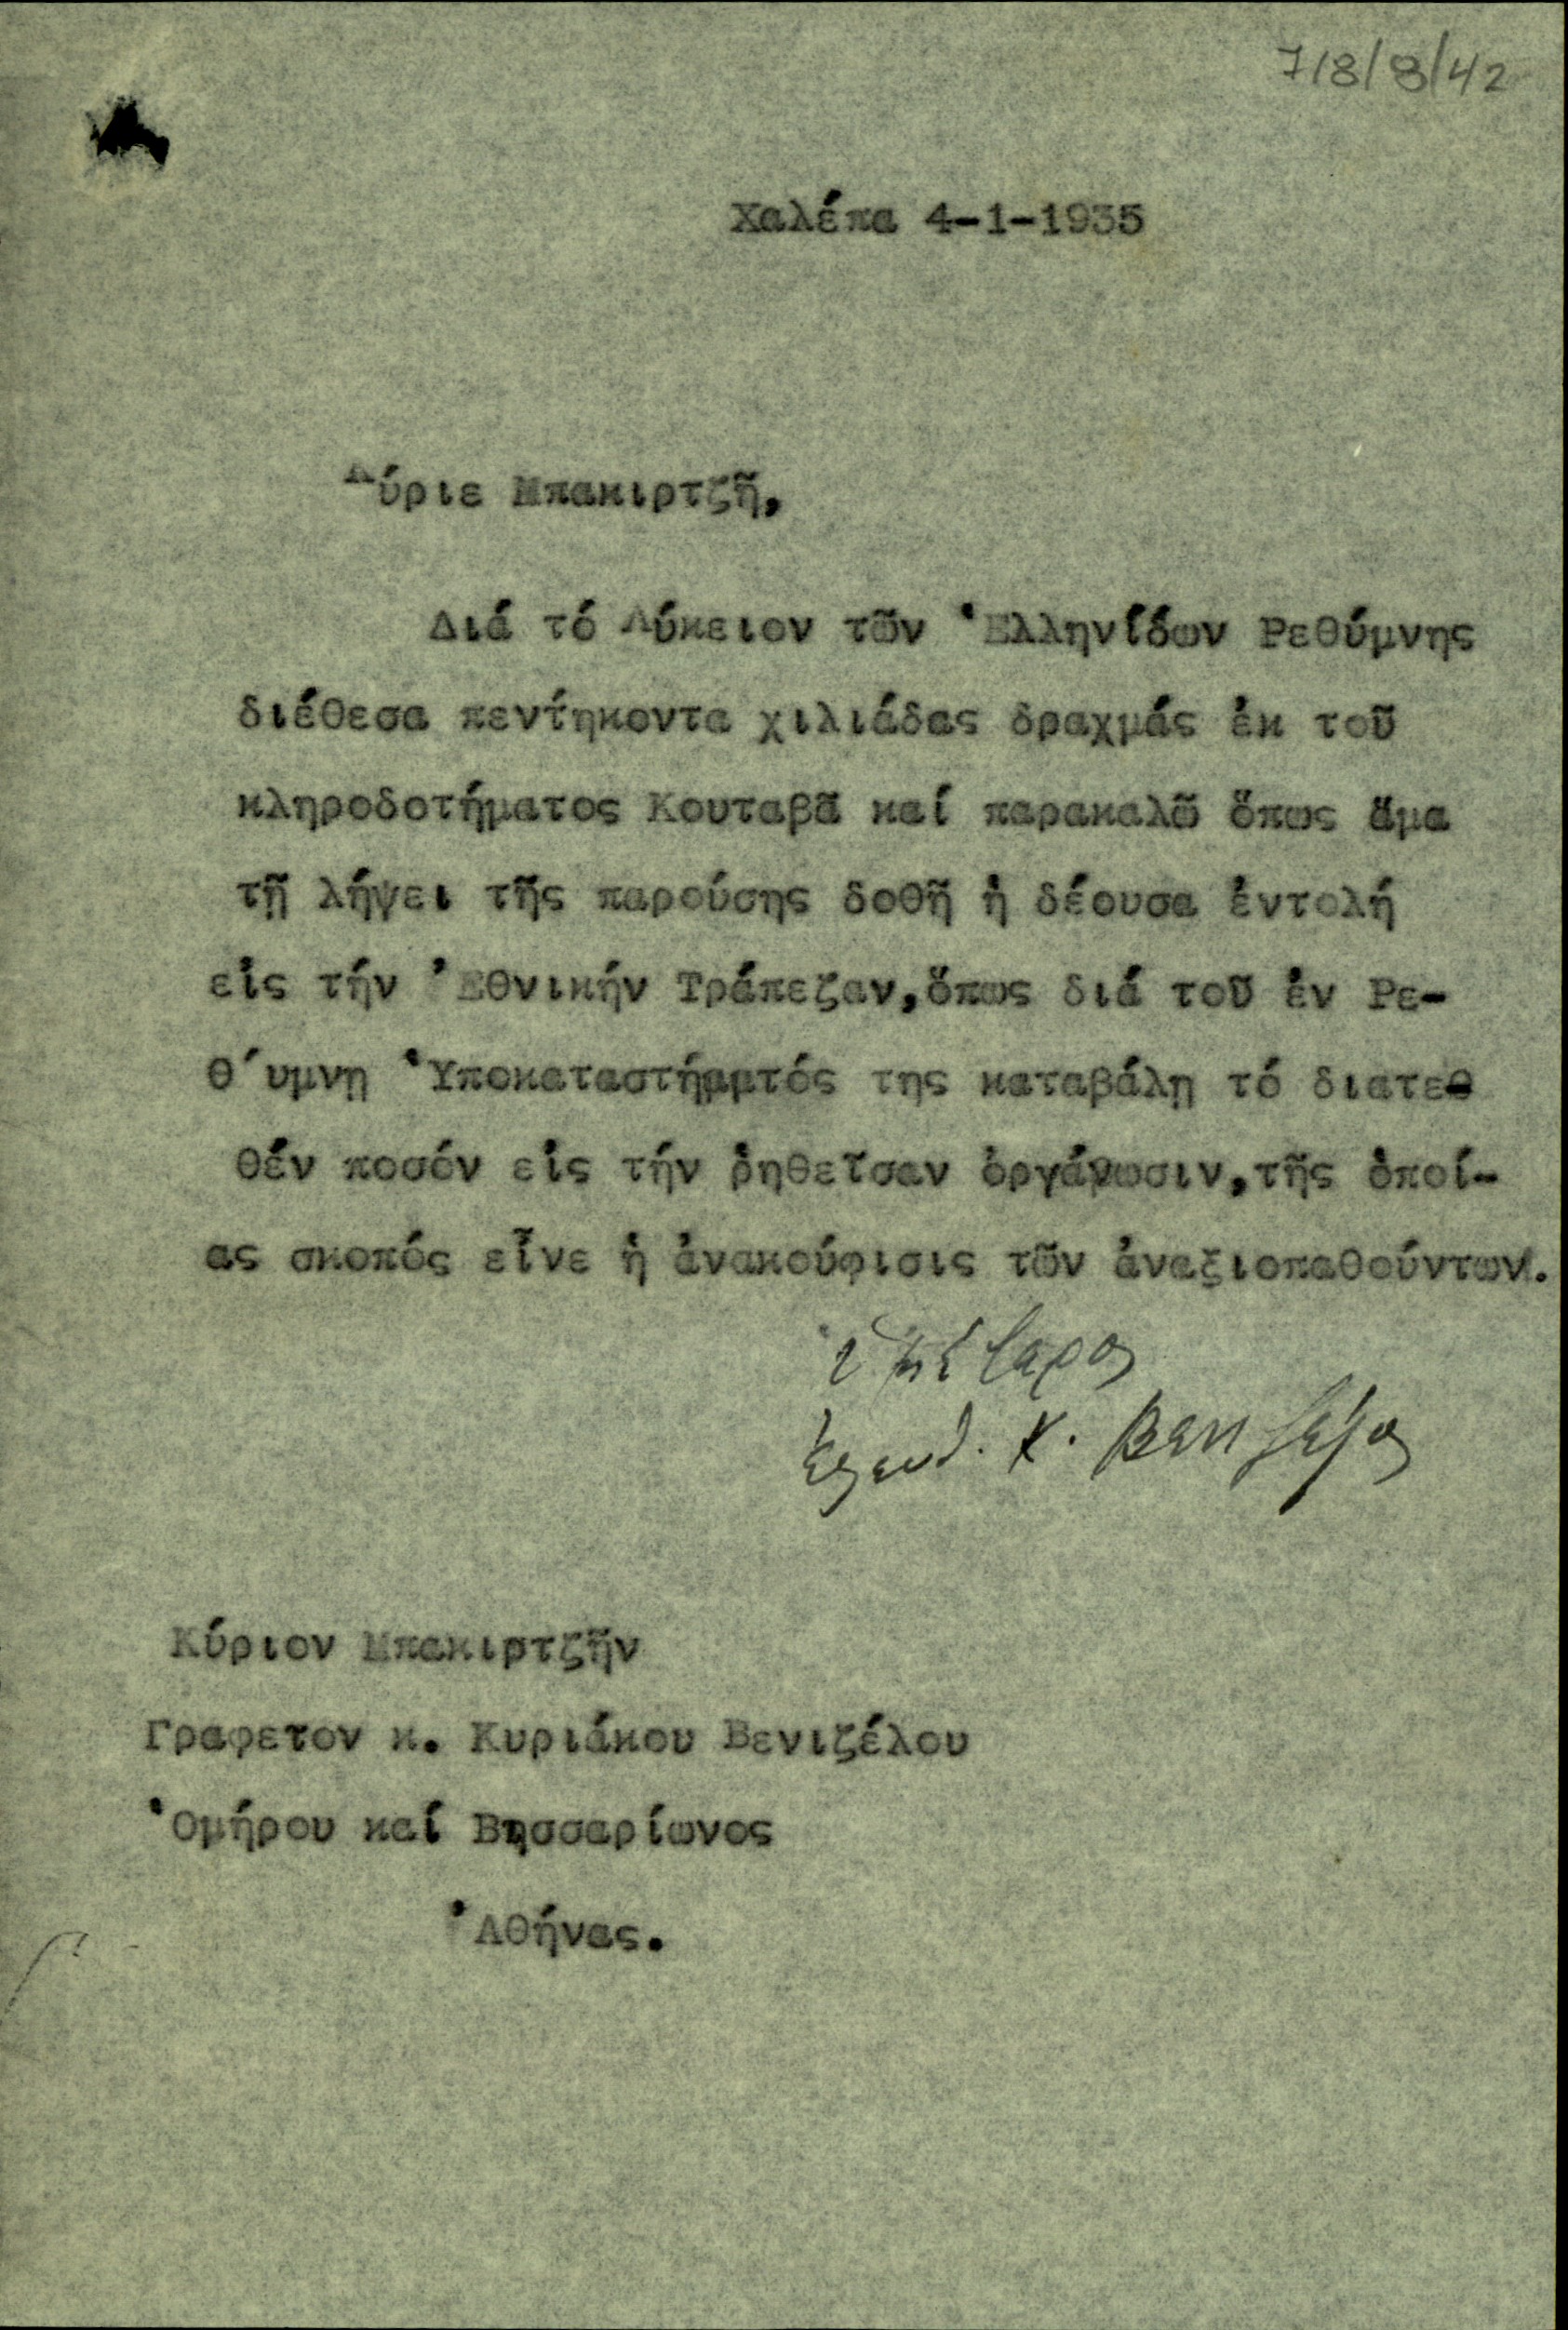 7/8/8/42
Χαλέπα 4-1-1935
Κύριε Μπακιρτζῆ,
Διά τό Λύκειον τῶν Ἑλληνίδων Ρεθύμνης
διέθεσα πεντήκοντα χιλιάδας δραχμάς ἐκ τοῦ
κληροδοτήματος Κουταβᾶ καί παρακαλῶ ὅπως ἅμα
τῇ λήψει τῆς παρούσης δοθῇ ἡ δέουσα ἐντολή
εἰς τήν Ἐθνικήν Τράπεζαν,ὅπως διά τοῦ ἐν Ρε-
θ΄υμνῃ Ὑποκαταστήματός της καταβάλῃ τό διατεθ
θέν ποσόν εἰς τήν ῥηθεῖσαν ὀργάνωσιν,τῆς ὁποί-
ας σκοπός εἶνε ἡ ἀνακούφισις τῶν ἀναξιοπαθούντων.
Ἐλευθ. Κ. Βενιζέλος
Κύριον Μπακιρτζῆν
Γραφεῖον κ. Κυριάκου Βενιζέλου
Ὁμήρου καί Βησσαρίωνος
Ἀθήνας.